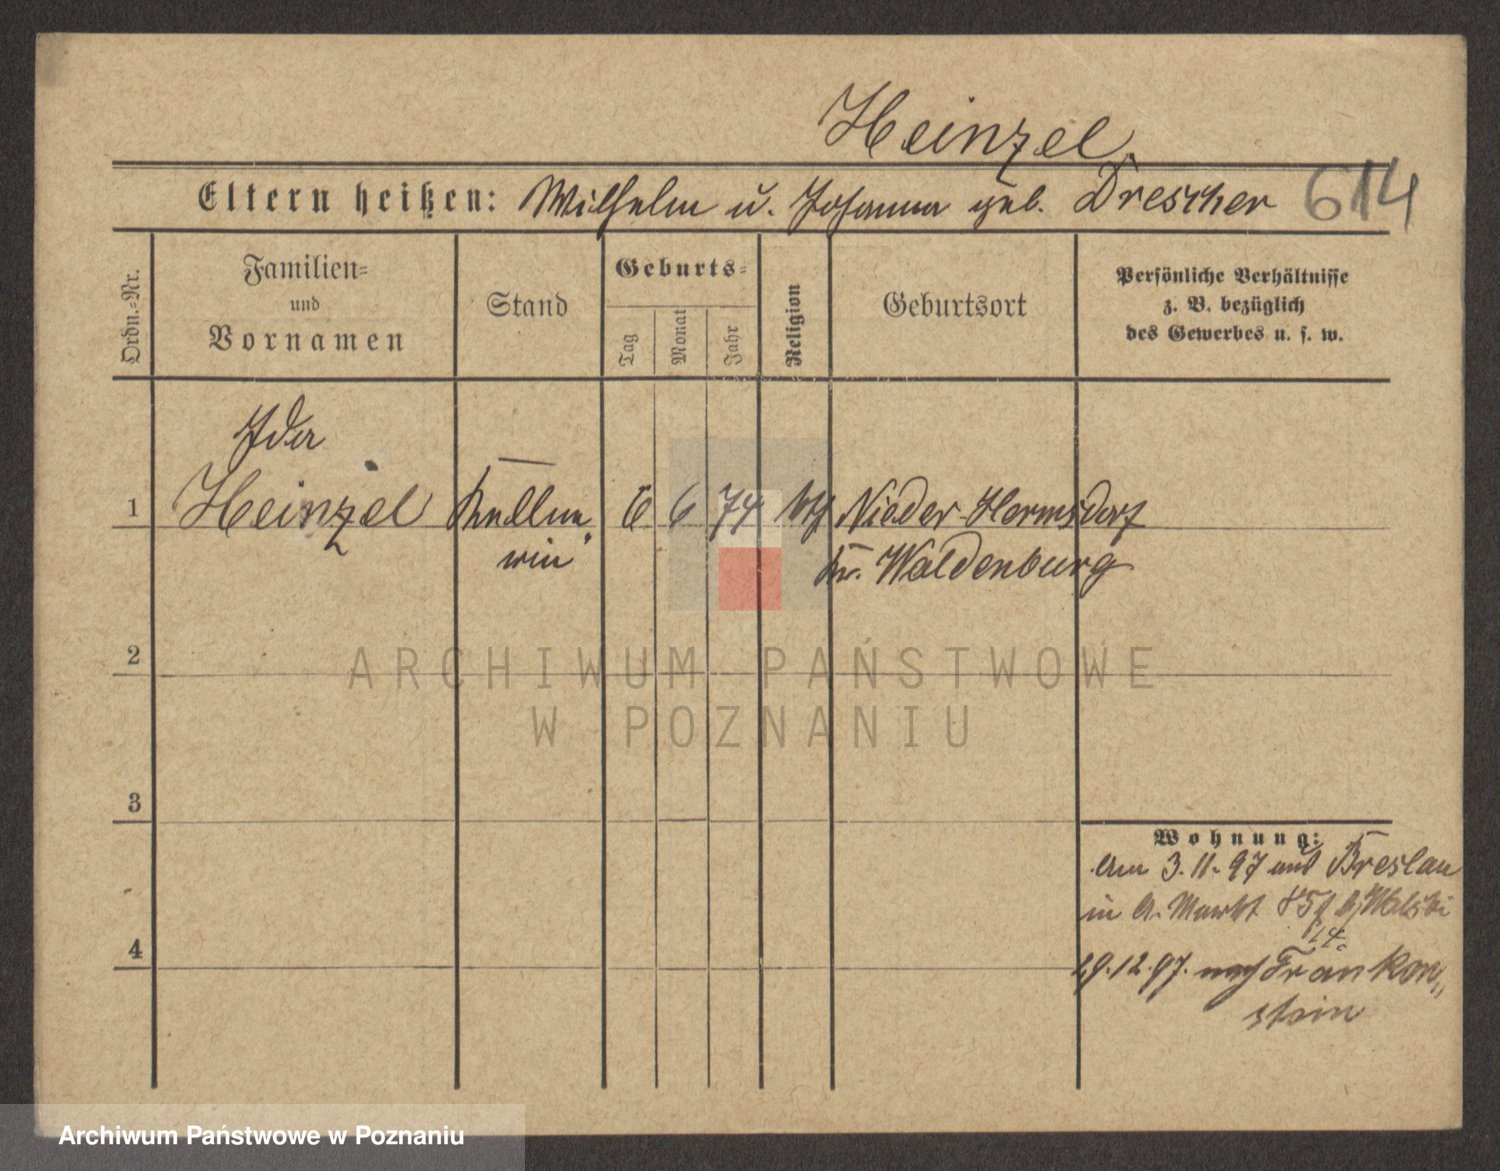 Heinzel
Eltern heißen: Wilhelm u. Johanna geb. Drescher 614
Ordn.-Nr.
Familien-
und
Vornamen
Stand
Geburts-
Tag
Monat
Jahr
Religion
Geburtsort
Persönliche Verhältnisse
z. B. bezüglich
des Gewerbes u. s. w.
Ida
1 Heinzel Kellne 6 6 74 Nieder Hermsdorf
rin Kr. Waldenburg
2
ARCHIWUM PAŃSTWOWE
W POZNANIU
3
Wohnung:
Am 3.11.97 aus Breslau
in A. Markt 85
4
29.12.97. nach Franken
stein
Archiwum Państwowe w Poznaniu